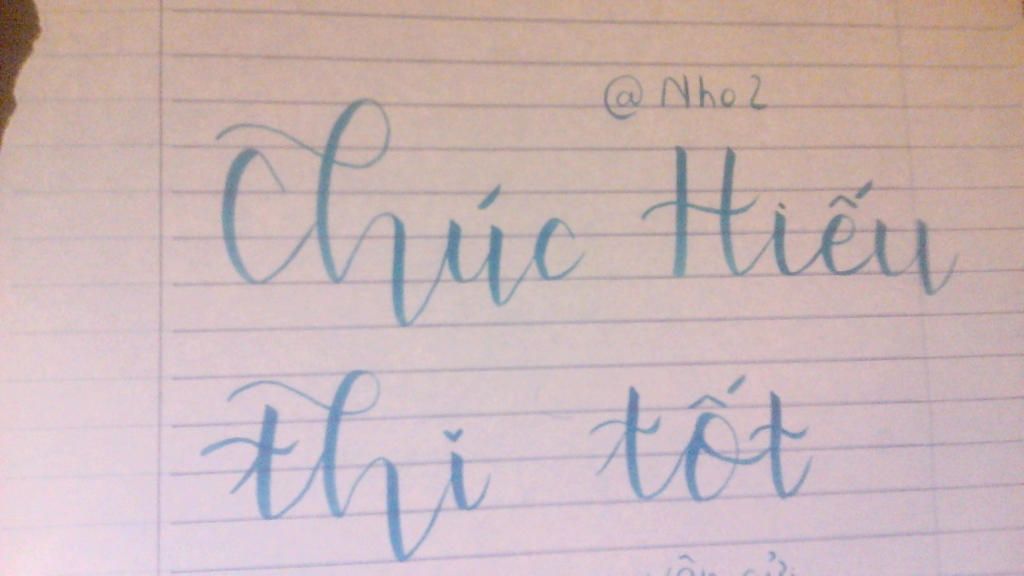 @Nho2
Chúc Hiếu
thi tốt